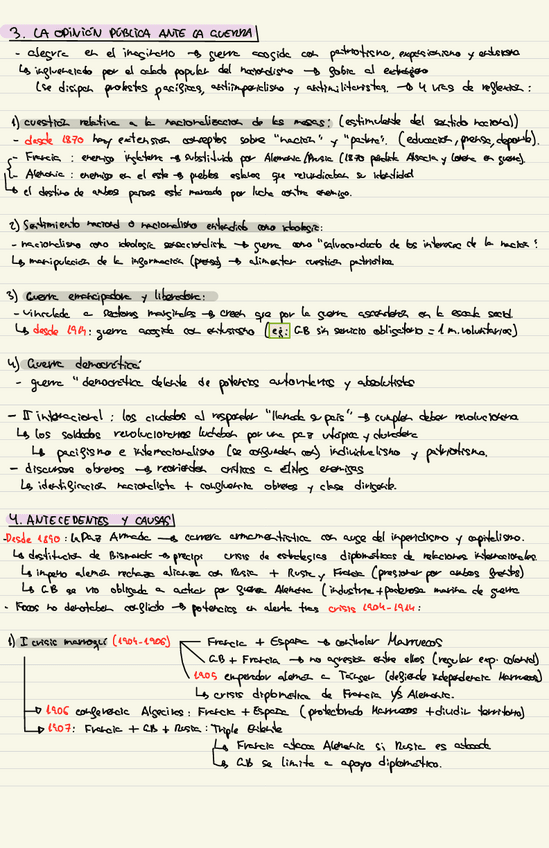 3. LA OPINIÓN PÚBLICA ANTE LA GUERRA
- alegría en el imaginario → guerra acogida con patriotismo, expansionismo y entusiasmo
↳ influenciado por el calado popular del nacionalismo → fobia al extranjero
(se disipan protestas pacifistas, antiimperialismo y antimilitaristas → 4 vías de reflexión:
1) cuestión relativa a la nacionalización de las masas: (estimulante del sentido nacional))
- desde 1870 hay extensión conceptos sobre "nación" y "patria". (educación, prensa, deporte).
- Francia: enemigo Inglaterra → substituido por Alemania/Prusia (1870 pérdida Alsacia y Lorena en guerra).
- Alemania: enemigo en el este → pueblos eslavos que reivindicaban su identidad
↳ el destino de ambos países está marcado por lucha contra enemigo.
2) Sentimiento nacional o nacionalismo entendido como ideología:
- nacionalismo como ideología → guerra como "salvoconducto de los intereses de la nación":
↳ manipulación de la información (prensa) → alimentar cuestión patriótica
3) Guerra emancipadora y liberadora:
- vinculada a sectores marginales → creen que por la guerra ascenderán en la escala social
↳ desde 1914: guerra acogida con entusiasmo (eg: GB sin servicio obligatorio = 1 m. voluntarios)
4) Guerra democrática:
- guerra "democrática delante de potencias autoritarias y absolutistas
- II internacional: los ciudados al responder "llamada su país" → cumplen deber revolucionario
↳ los soldados revolucionarios luchaban por una paz utópica y duradera
↳ pacifismo e internacionalismo (se confunden con) individualismo y patriotismo.
- discursos obreros → reorientan críticas a élites enemigas
↳ identificación nacionalista + congruencia obreros y clase dirigente.
4. ANTECEDENTES Y CAUSAS
- Desde 1890: La Paz Armada → carrera armamentística con auge del imperialismo y capitalismo.
↳ destitución de Bismarck → precipi crisis de estrategias diplomáticas de relaciones internacionales.
↳ imperio alemán rechaza alianza con Rusia + Rusia y Francia (presionar por ambos frentes)
↳ GB se vio obligada a actuar por guerra Alemania (industria + poderosa marina de guerra
- Focos no denotaban conflicto → potencias en alerta tras crisis 1904-1914:
1) I crisis marroquí (1904-1906)
Francia + España → controlar Marruecos
GB + Francia → no agresión entre ellos (regular exp. colonial)
1905 emperador alemán a Tánger (defiende independencia Marruecos)
↳ crisis diplomática de Francia y/s Alemania.
→ 1906 conferencia Algeciras: Francia + España (protectorado Marruecos + dividir territorio)
→ 1907: Francia + GB + Rusia: Triple Entente
↳ Francia ataca Alemania si Rusia es atacada
↳ GB se limita a apoyo diplomático.